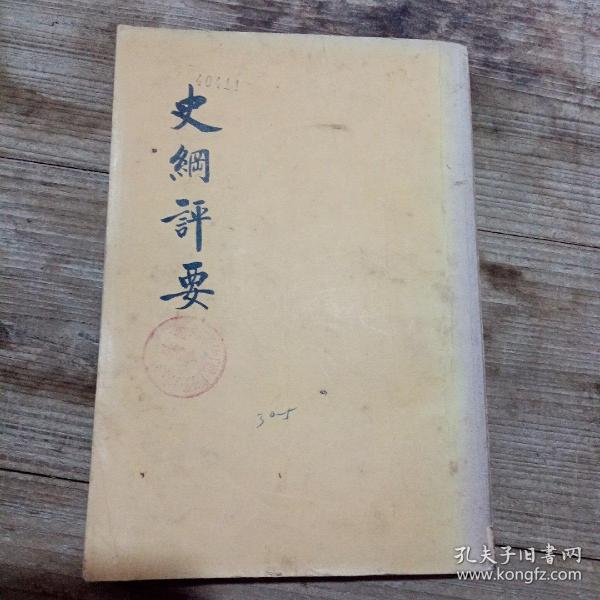 40411
史綱評要
305
孔夫子旧書网
www.kongfz.com